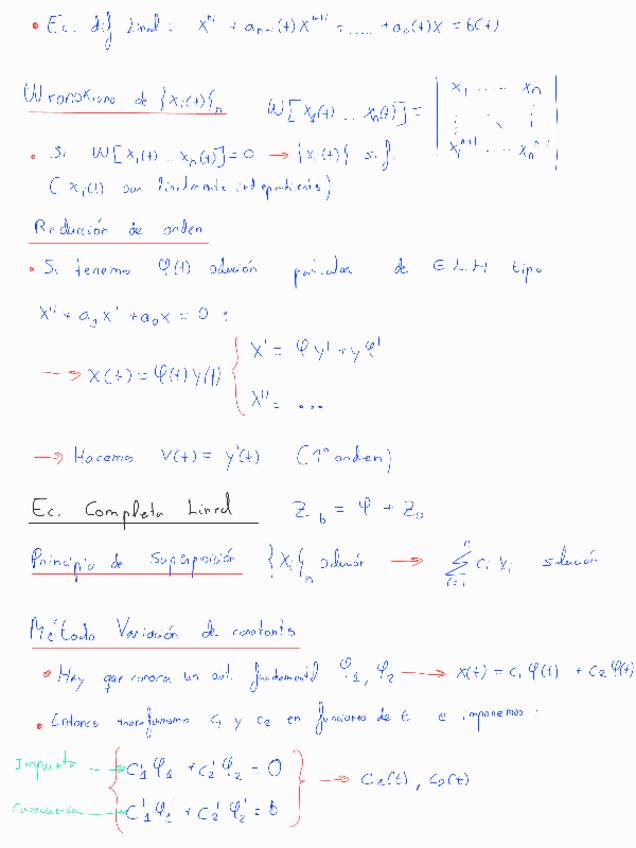 • Ec. dif Lineal: xⁿ⁾ + aₙ₋₁(t)xⁿ⁻¹⁾ = ..... + a₀(t)x = b(t)
Wronskiano de {xᵢ(t)}ₙ W[x₁(t) .. xₙ(t)] = | x₁ ... xₙ
⋮ ⋱ ⋮
x₁ⁿ⁻¹⁾ ... xₙⁿ⁻¹⁾ |
• Si W[x₁(t) .. xₙ(t)] = 0 → {xᵢ(t)} s.f.
(xᵢ(t) son linealmente independientes)
Reducción de orden
• Si tenemos φ(t) solución particular de E.L.H tipo
x'' + a₁x' + a₀x = 0 :
→ x(t) = φ(t) y(t) { x' = φy' + yφ'
x'' = ...
→ Hacemos v(t) = y'(t) (1º orden)
Ec. Completa Lineal Z_b = φ + Z₀
Principio de Superposición {xᵢ}ₙ solución → Σᵢ₌₁ⁿ cᵢ xᵢ solución
Método Variación de constantes
• Hay que conocer un sol. fundamental φ₁, φ₂ → x(t) = c₁ φ(t) + c₂ φ(t)
• Entonces transformamos c₁ y c₂ en funciones de t e imponemos:
Impuesta → { c₁'φ₁ + c₂'φ₂ = 0
Consecuencia → c₁'φ₁' + c₂'φ₂' = b } → c₁(t), c₂(t)